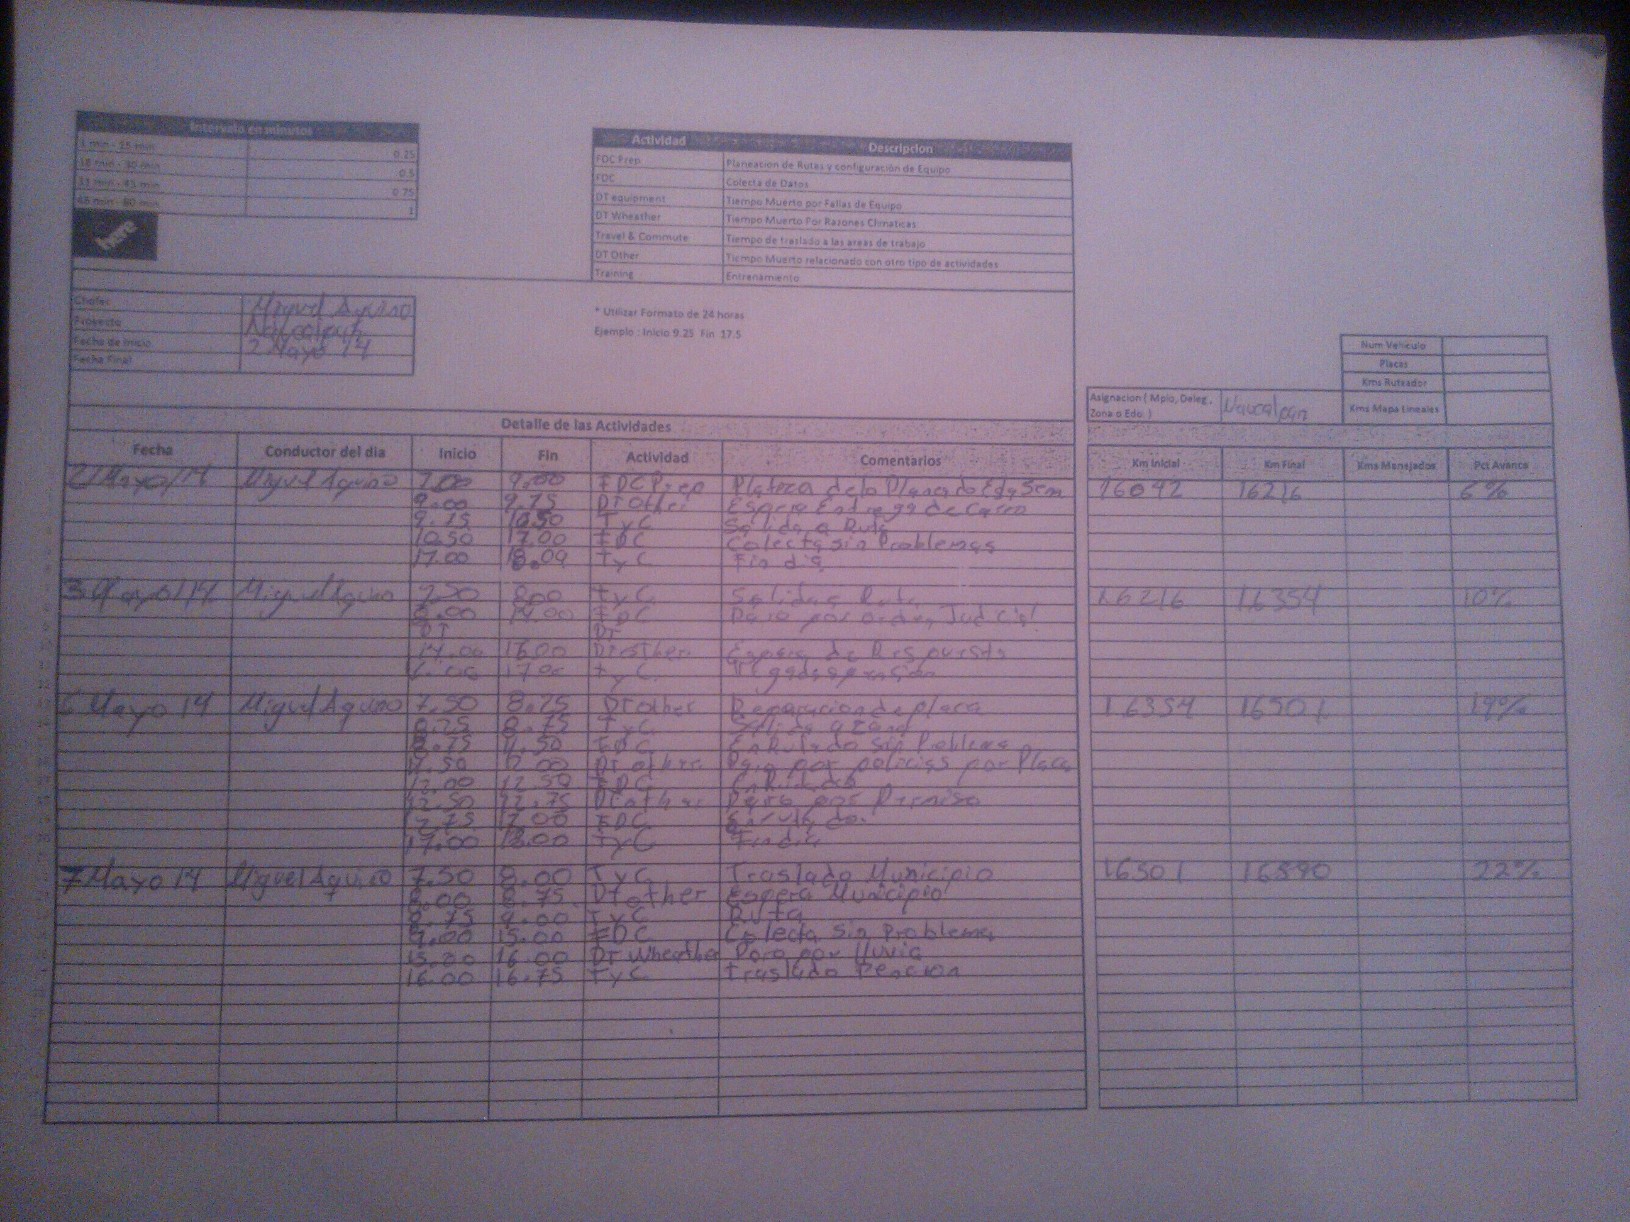 Intervalo en minutos
1 min - 15 min 0.25
16 min - 30 min 0.5
31 min - 45 min 0.75
46 min - 60 min 1
here
Actividad Descripcion
FDC Prep Planeacion de Rutas y configuración de Equipo
FDC Colecta de Datos
DT equipment Tiempo Muerto por Fallas de Equipo
DT Wheather Tiempo Muerto Por Razones Climaticas
Travel & Commute Tiempo de traslado a las areas de trabajo
DT Other Tiempo Muerto relacionado con otro tipo de actividades
Training Entrenamiento
Chofer Miguel Aquino
Proyecto Naucalpan
Fecha de Inicio 2 Mayo 14
Fecha Final
* Utilizar Formato de 24 horas
Ejemplo : Inicio 9.25 Fin 17.5
Num Vehiculo
Placas
Kms Ruteador
Kms Mapa Lineales
Asignacion ( Mpio, Deleg , Zona o Edo. ) Naucalpan
Detalle de las Actividades
Fecha Conductor del dia Inicio Fin Actividad Comentarios Km Inicial Km Final Kms Manejados Pct Avance
2/Mayo/14 Miguel Aquino 7.00 9.00 FDC Prep Platica de lo Planeado 16092 16216 6%
9.00 9.75 DT Other Espera Entrega de Carro
9.75 10.50 TyC Salida a Ruta
10.50 17.00 FDC Colecta sin Problemas
17.00 18.00 TyC Fin dia
3 Mayo/14 Miguel Aquino 7.50 8.00 TyC Salida a Ruta 16216 16354 10%
8.00 14.00 FDC Paro por orden Judicial
DT DT
14.00 16.00 DT other Espera de Respuesta
16.00 17.00 TyC
6 Mayo 14 Miguel Aquino 7.50 8.25 DT other Reparacion de placa 16354 16501 19%
8.25 8.75 TyC Salida a zona
8.75 11.50 FDC Enrutado sin Problema
11.50 12.00 DT other Paro por policias por Placa
12.00 12.50 FDC Enrutado
12.50 12.75 DT other Paro por Permiso
12.75 17.00 FDC Enrutado
17.00 18.00 TyC Fin dia
7 Mayo 14 Miguel Aquino 7.50 8.00 TyC Traslado Municipio 16501 16590 22%
8.00 8.75 DT other Espera Municipio
8.75 9.00 TyC Ruta
9.00 15.00 FDC Colecta Sin Problemas
15.00 16.00 DT Wheather Paro por lluvia
16.00 16.75 TyC Traslado Pencion